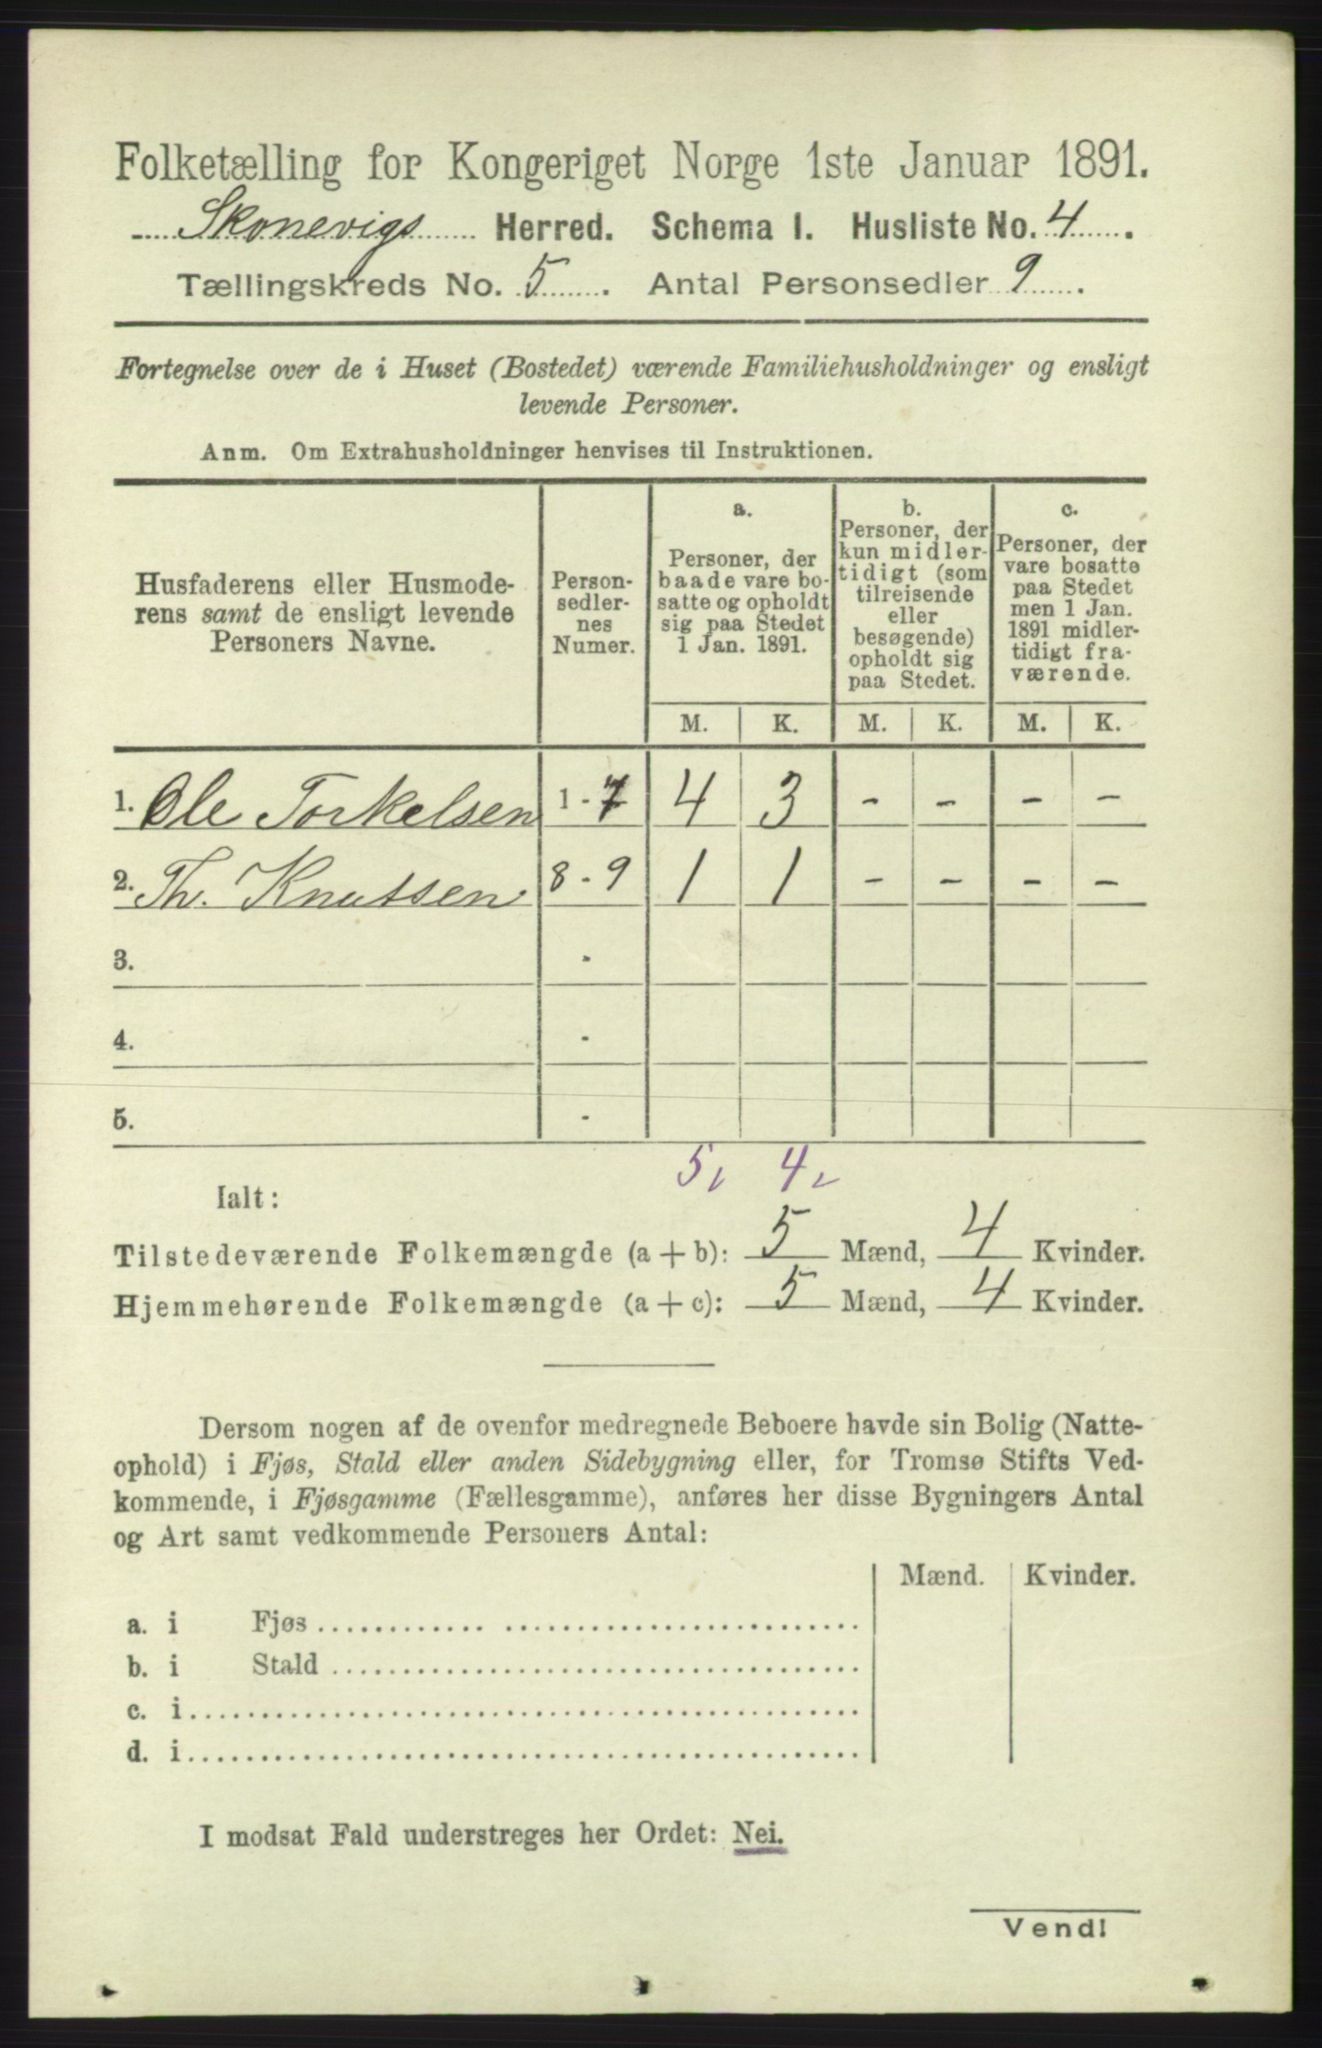 Folketælling for Kongeriget Norge 1ste Januar 1891.
Skonevigs Herred. Schema I. Husliste No. 4.
Tællingskreds No. 5. Antal Personsedler 9.
Fortegnelse over de i Huset (Bostedet) værende Familiehusholdninger og ensligt
levende Personer.
Anm. Om Extrahusholdninger henvises til Instruktionen.
Husfaderens eller Husmode-
rens samt de ensligt levende
Personers Navne.
Person-
sedler-
nes
Numer.
a.
Personer, der
baade vare bo-
satte og opholdt
sig paa Stedet
1 Jan. 1891.
b.
Personer, der
kun midler-
tidigt (som
tilreisende
eller
besøgende)
opholdt sig
paa Stedet.
c.
Personer, der
vare bosatte
paa Stedet
men 1 Jan.
1891 midler-
tidigt fra-
værende.
M. K. M. K. M. K.
1. Ole Torkelsen 1 - 7 4 3 - - - -
2. Th. Knutsen 8 - 9 1 1 - - - -
3. -
4. -
5. -
5 4
Ialt:
Tilstedeværende Folkemængde (a + b): 5 Mænd, 4 Kvinder.
Hjemmehørende Folkemængde (a + c): 5 Mænd, 4 Kvinder.
Dersom nogen af de ovenfor medregnede Beboere havde sin Bolig (Natte-
ophold) i Fjøs, Stald eller anden Sidebygning eller, for Tromsø Stifts Ved-
kommende, i Fjøsgamme (Fællesgamme), anføres her disse Bygningers Antal
og Art samt vedkommende Personers Antal:
Mænd. Kvinder.
a. i Fjøs
b. i Stald
c. i
d. i
I modsat Fald understreges her Ordet: Nei.
Vend!